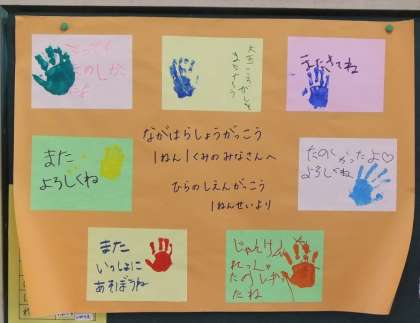 とっても
たのしかった
よ
大玉ころがしを
またやろう
またきてね
ながはらしょうがっこう
1ねん1くみのみなさんへ
ひらのしえんがっこう
1ねんせいより
また
よろしくね
たのしかったよ♡
よろしくね
また
いっしょに
あそぼうね
じゃんけん
れっしゃ
たのしかっ
たね